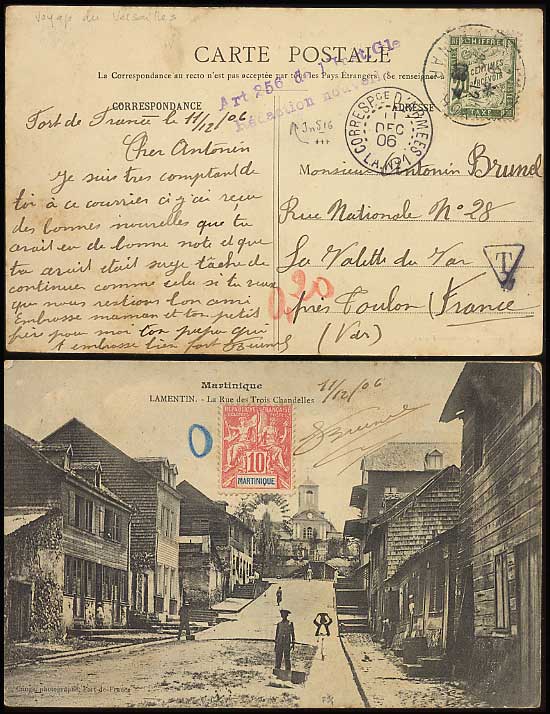 Voyage du Versailles
CARTE POSTALE
La Correspondance au recto n'est pas acceptée par tous les Pays Étrangers. (Se renseigner à
Art 256 de l'Inst. Gle
Rédaction nouvelle
CORRESPONDANCE
ADRESSE
CHIFFRE
CENTIMES
À RECEVOIR
TAXE
CORRESP CE D'ARMÉES
11
DEC
06
Fort de France le 11/12/06
Cher Antonin
Je suis très comptant de
toi à ce courrier ci j'ai reçu
des bonnes nouvelles que tu
avait eu de bonne note et que
tu avait était sage tâche de
continuer comme cela si tu veux
que nous restions bon ami
Embrasse maman et ton petit
père pour moi ton papa qui
t embrasse bien fort Brunel
Monsieur Antonin Brunel
Rue Nationale N° 28
La Valette du Var
près Toulon (France)
(Var)
T
0,20
Martinique
LAMENTIN. - La Rue des Trois Chandelles
11/12/06
Brunel
0
RÉPUBLIQUE FRANÇAISE
COLONIES
POSTES
10
MARTINIQUE
photographe, Fort-de-France